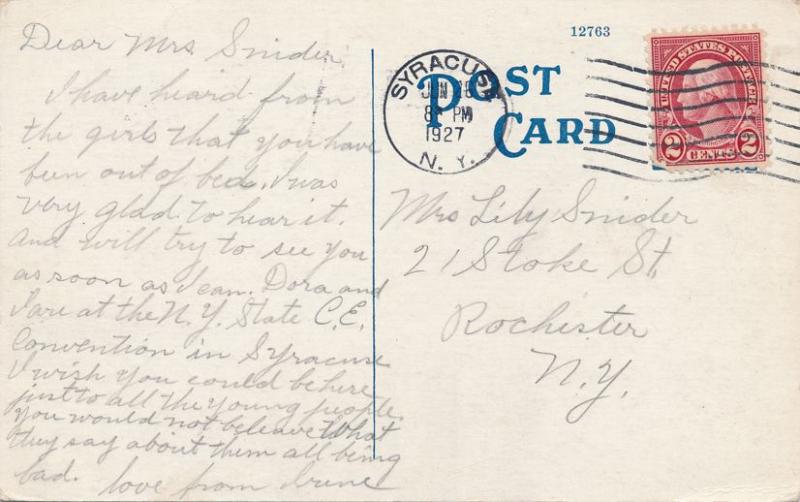 Dear Mrs Snider.
I have heard from
the girls that you have
been out of bed. I was
very glad to hear it.
and will try to see you
as soon as I can. Dora and
I are at the N.Y. State C.E.
Convention in Syracuse
I wish you could be here
just to all the young people.
you would not beleave what
they say about them all being
bad. love from Irene
12763
POST
CARD
SYRACUSE
JUN
PM
1927
N. Y.
UNITED STATES POSTAGE
2 CENTS 2
Mrs Lily Snider
21 Stoke St.
Rochester
N.Y.